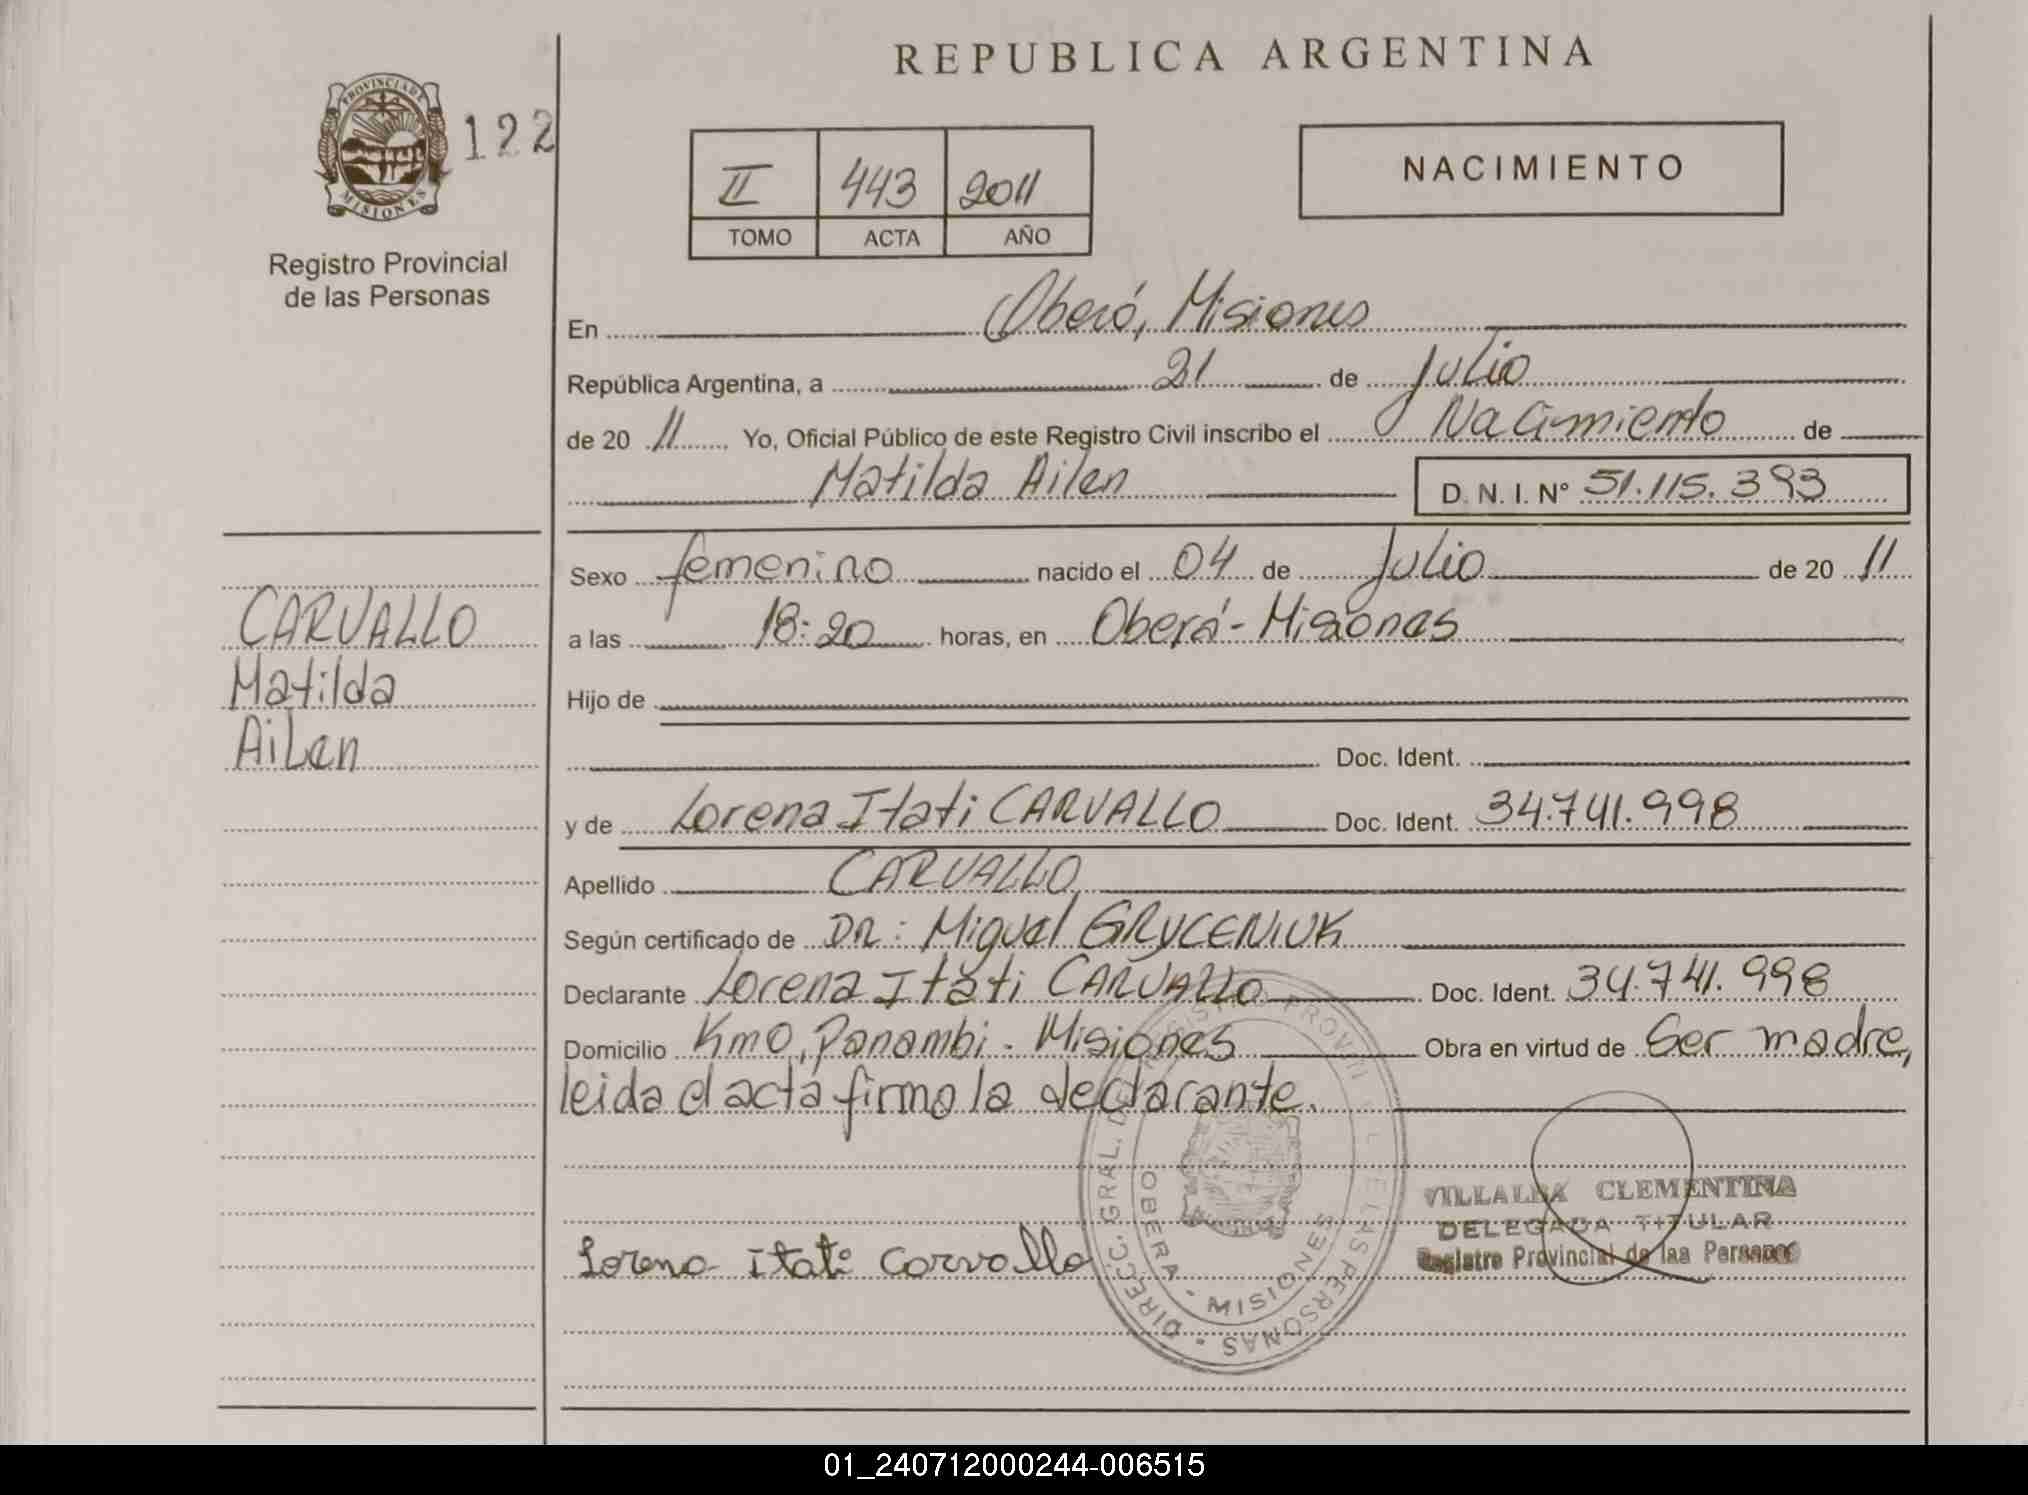 REPUBLICA ARGENTINA
PROVINCIA DE
MISIONES
122
Registro Provincial
de las Personas
II 443 2011
TOMO ACTA AÑO
NACIMIENTO
En Oberá, Misiones
República Argentina, a 21 de Julio
de 20 11 Yo, Oficial Público de este Registro Civil inscribo el Nacimiento de
Matilda Ailen D. N. I. N° 51.115.393
CARVALLO
Matilda
Ailen
Sexo femenino nacido el 04 de Julio de 20 11
a las 18:20 horas, en Oberá - Misiones
Hijo de
Doc. Ident.
y de Lorena Itati CARVALLO Doc. Ident. 34.741.998
Apellido CARVALLO
Según certificado de DR: Miguel GRYCENIUK
Declarante Lorena Itati CARVALLO Doc. Ident. 34.741.998
Domicilio Km0, Panambi - Misiones Obra en virtud de Ser madre,
leida el acta firmo la declarante.
Lorena Itati Carvallo
DIRECC. GRAL. DE REGISTRO PROVINCIAL DE LAS PERSONAS
OBERA - MISIONES
VILLALBA CLEMENTINA
DELEGADA TITULAR
Registro Provincial de las Personas
01_240712000244-006515